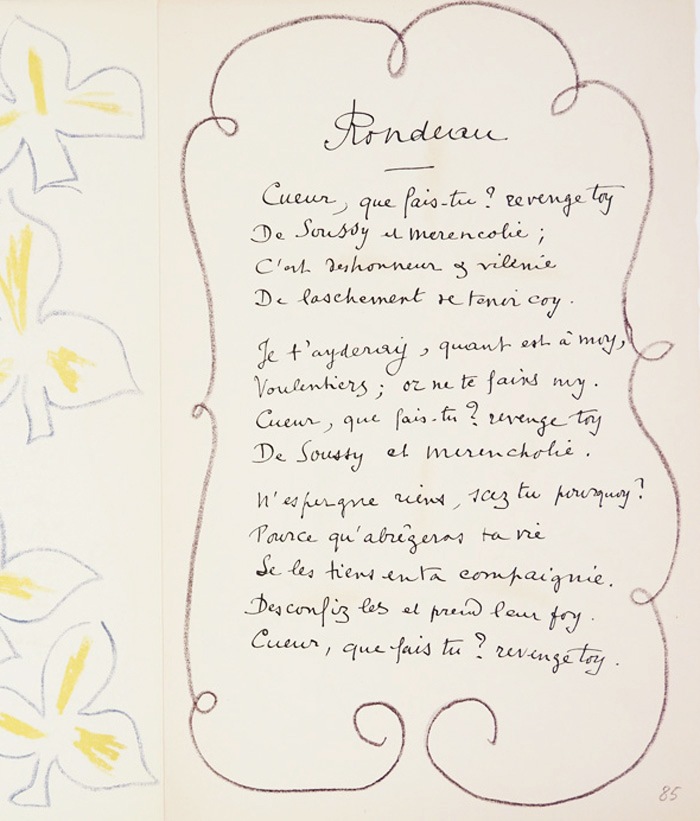 Rondeau
Cueur, que fais-tu? revenge toy
De Soussy et merencolie;
C'est deshonneur & vilenie
De laschement se tenir coy.
Je t'ayderay, quant est à moy,
Voulentiers; or ne te fains my.
Cueur, que fais-tu? revenge toy
De Soussy et merencholie.
N'espergne riens, scez tu pourquoy?
Pource qu'abrègeras ta vie
Se les tiens en ta compaignie.
Desconfiz les et prend leur foy.
Cueur, que fais tu? revenge toy.
85